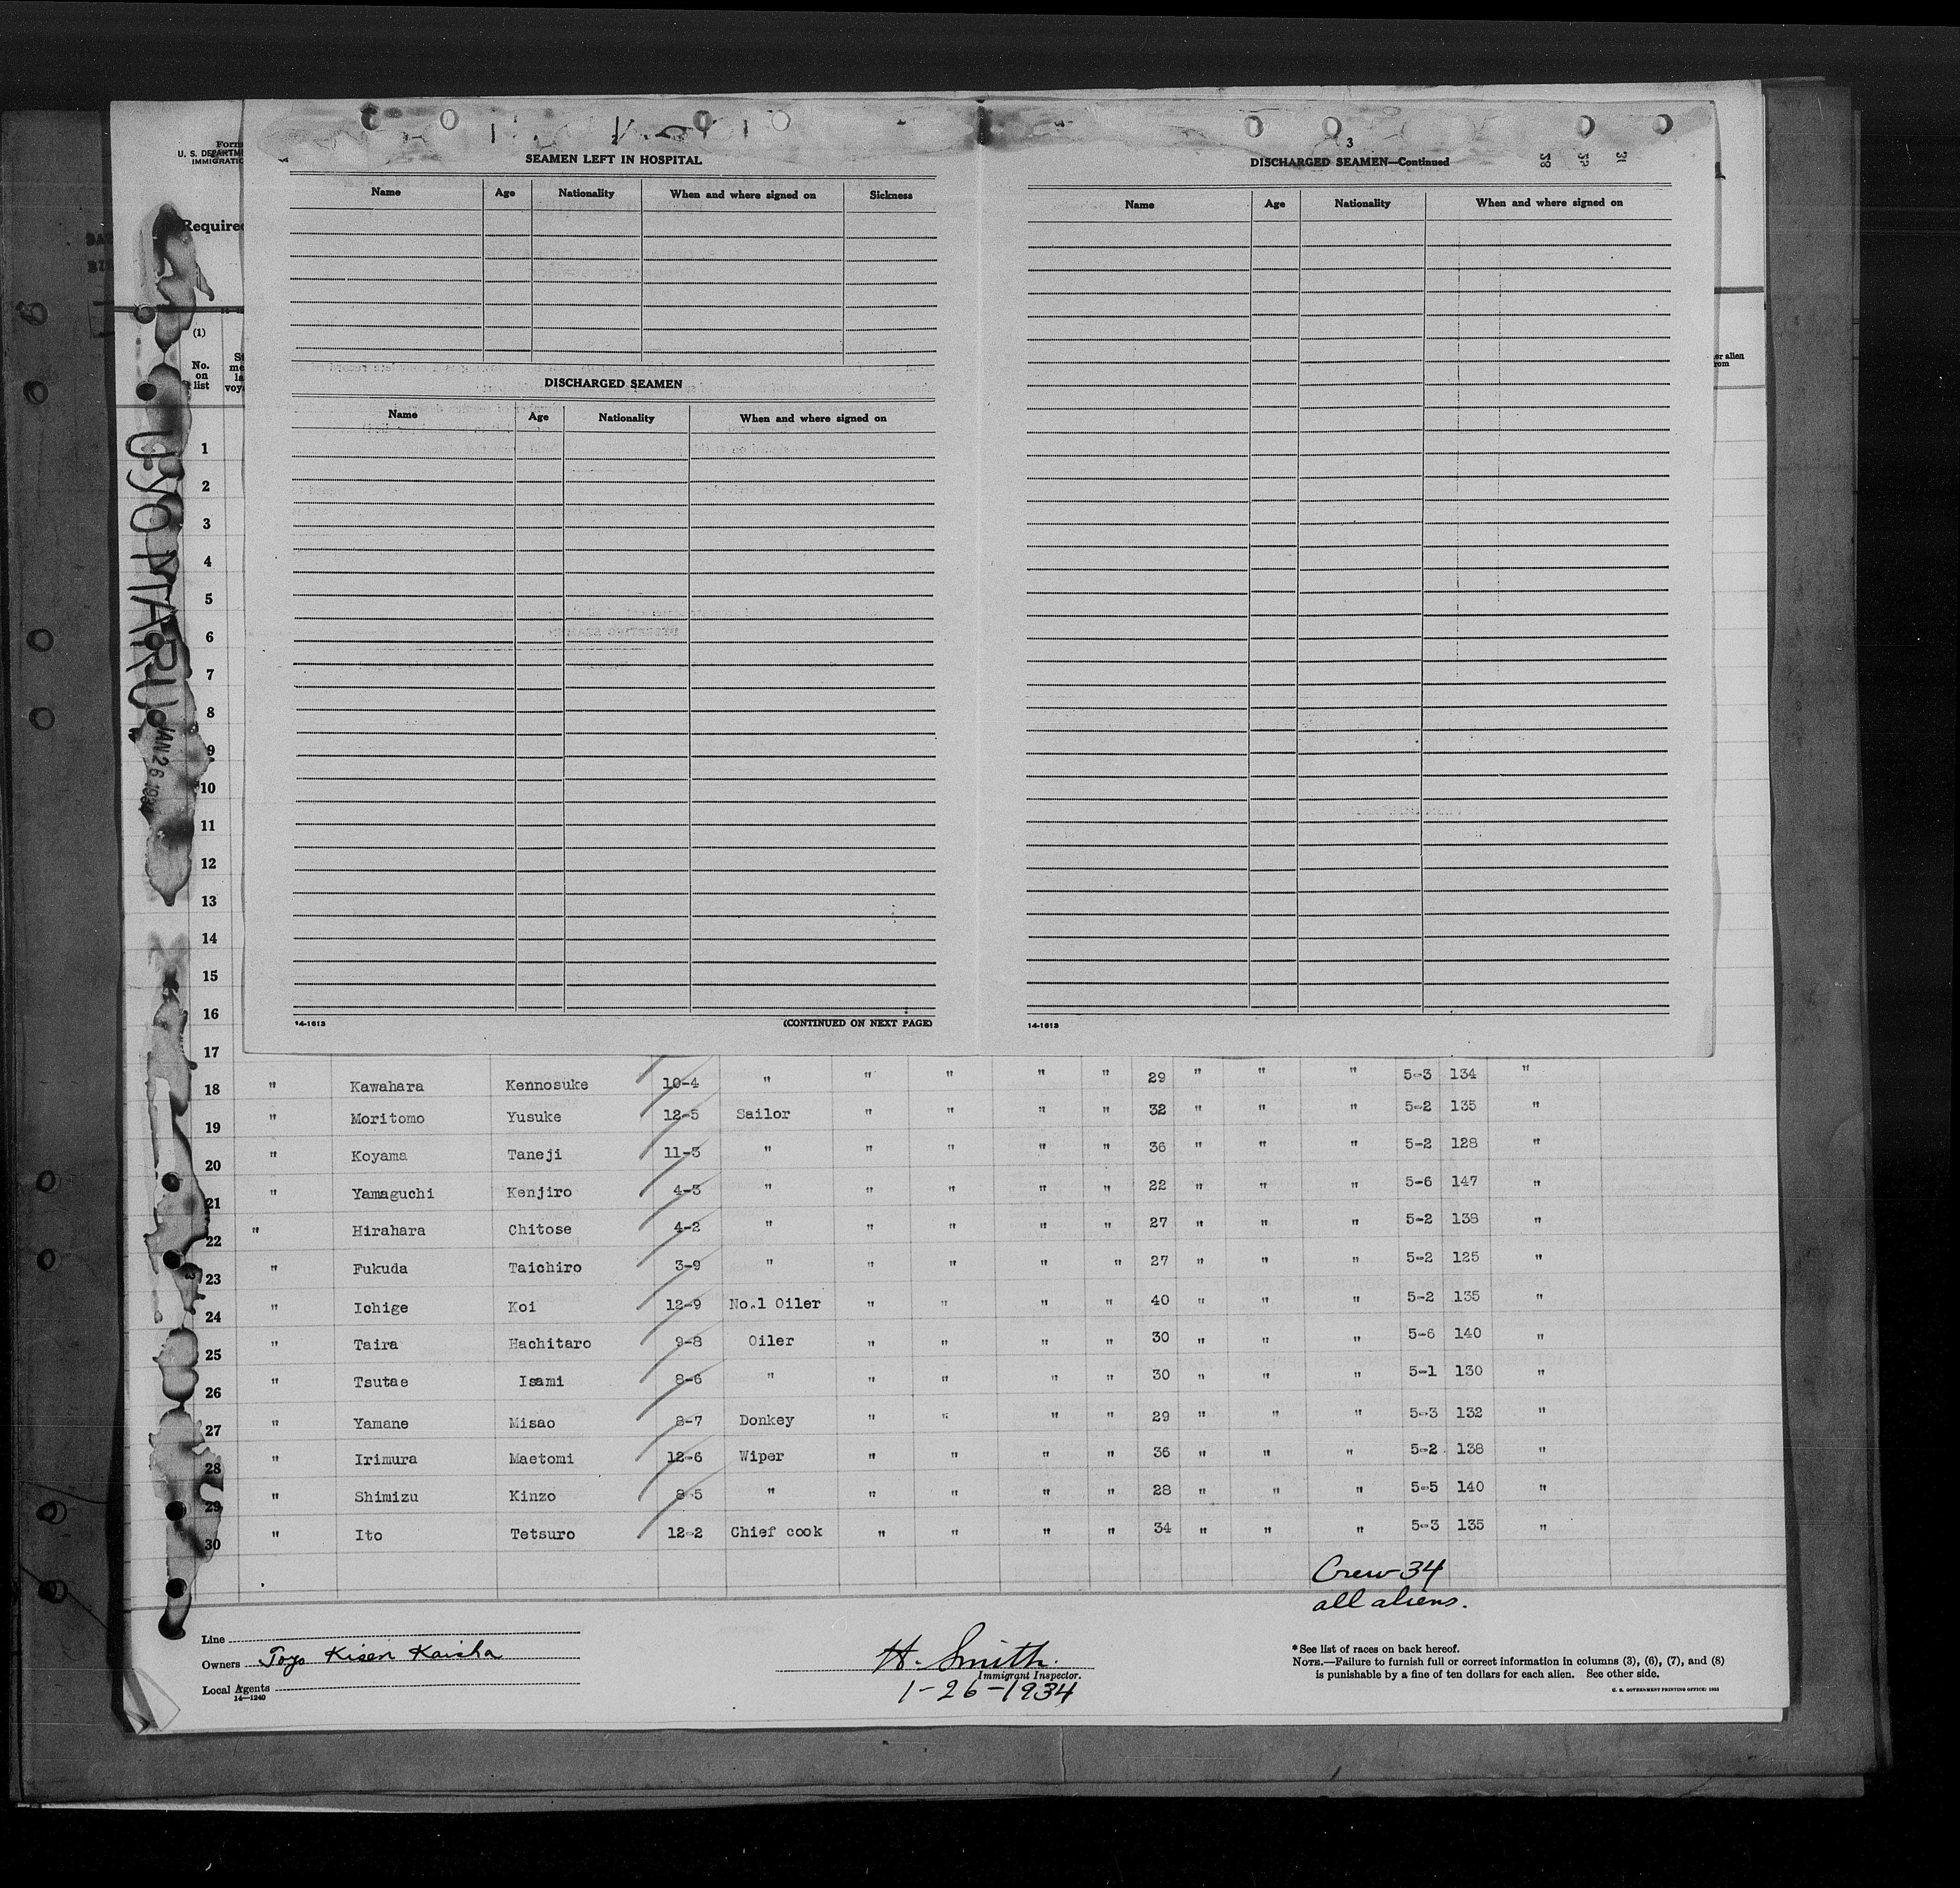 SEAMEN LEFT IN HOSPITAL
Name Age Nationality When and where signed on Sickness
DISCHARGED SEAMEN
Name Age Nationality When and where signed on
14-1613 (CONTINUED ON NEXT PAGE)
3
DISCHARGED SEAMEN—Continued
Name Age Nationality When and where signed on
14-1613
Form
U. S. DEPARTME
IMMIGRATIO
Require
(1)
No.
on
list
er alien
rom
UYO MARU
JAN 26 1934
1
2
3
4
5
6
7
8
9
10
11
12
13
14
15
16
17
18 " Kawahara Kennosuke 10-4 " " " " " 29 " " " 5-3 134 "
19 " Moritomo Yusuke 12-5 Sailor " " " " 32 " " " 5-2 135 "
20 " Koyama Taneji 11-3 " " " " " 36 " " " 5-2 128 "
21 " Yamaguchi Kenjiro 4-3 " " " " " 22 " " " 5-6 147 "
22 " Hirahara Chitose 4-2 " " " " " 27 " " " 5-2 138 "
23 " Fukuda Taichiro 3-9 " " " " " 27 " " " 5-2 125 "
24 " Ichige Koi 12-9 No.1 Oiler " " " " 40 " " " 5-2 135 "
25 " Taira Hachitaro 9-8 Oiler " " " " 30 " " " 5-6 140 "
26 " Tsutae Isami 8-6 " " " " " 30 " " " 5-1 130 "
27 " Yamane Misao 8-7 Donkey " " " " 29 " " " 5-3 132 "
28 " Irimura Maetomi 12-6 Wiper " " " " 36 " " " 5-2 138 "
29 " Shimizu Kinzo 8-5 " " " " " 28 " " " 5-5 140 "
30 " Ito Tetsuro 12-2 Chief cook " " " " 34 " " " 5-3 135 "
Crew 34
all aliens.
Line
Owners Toyo Kisen Kaisha
Local Agents
14—1240
H. Smith.
Immigrant Inspector.
1-26-1934
*See list of races on back hereof.
NOTE.—Failure to furnish full or correct information in columns (3), (6), (7), and (8)
is punishable by a fine of ten dollars for each alien. See other side.
U. S. GOVERNMENT PRINTING OFFICE: